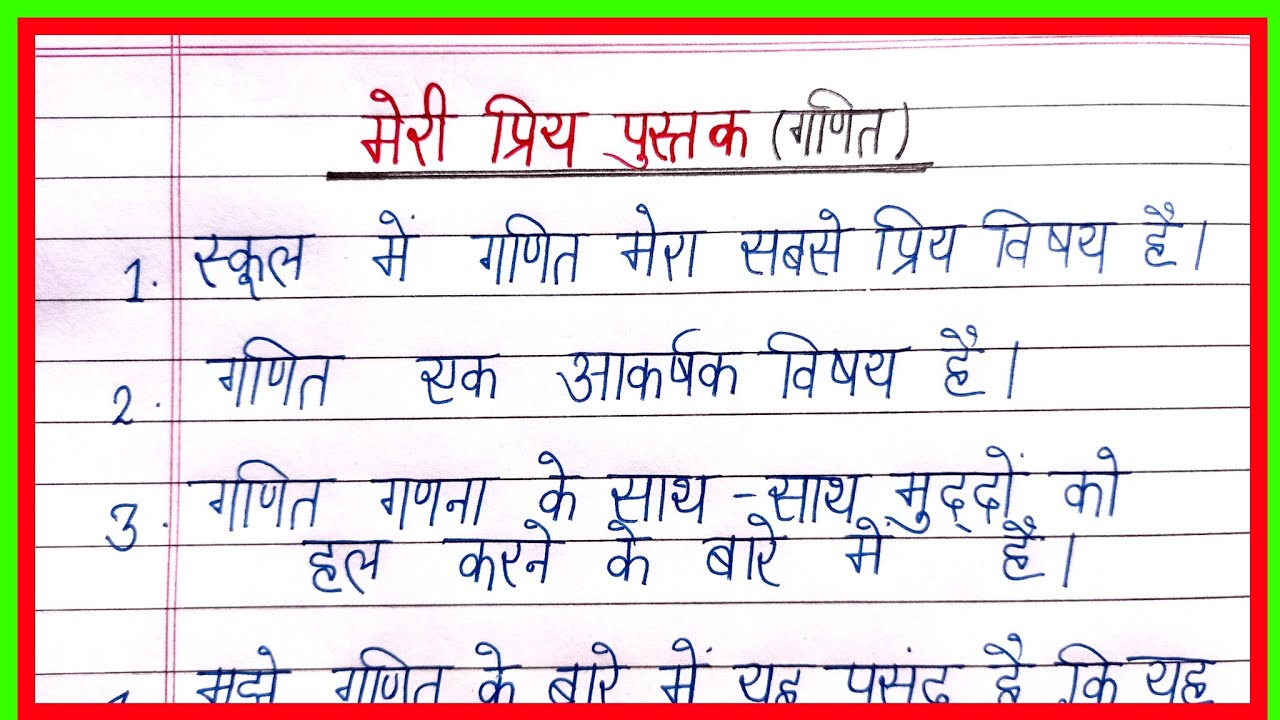 मेरी प्रिय पुस्तक (गणित)
1. स्कूल में गणित मेरा सबसे प्रिय विषय है।
2. गणित एक आकर्षक विषय है।
3. गणित गणना के साथ-साथ मुद्दों को
हल करने के बारे में है।
मुझे गणित के बारे में यह पसंद है कि यह